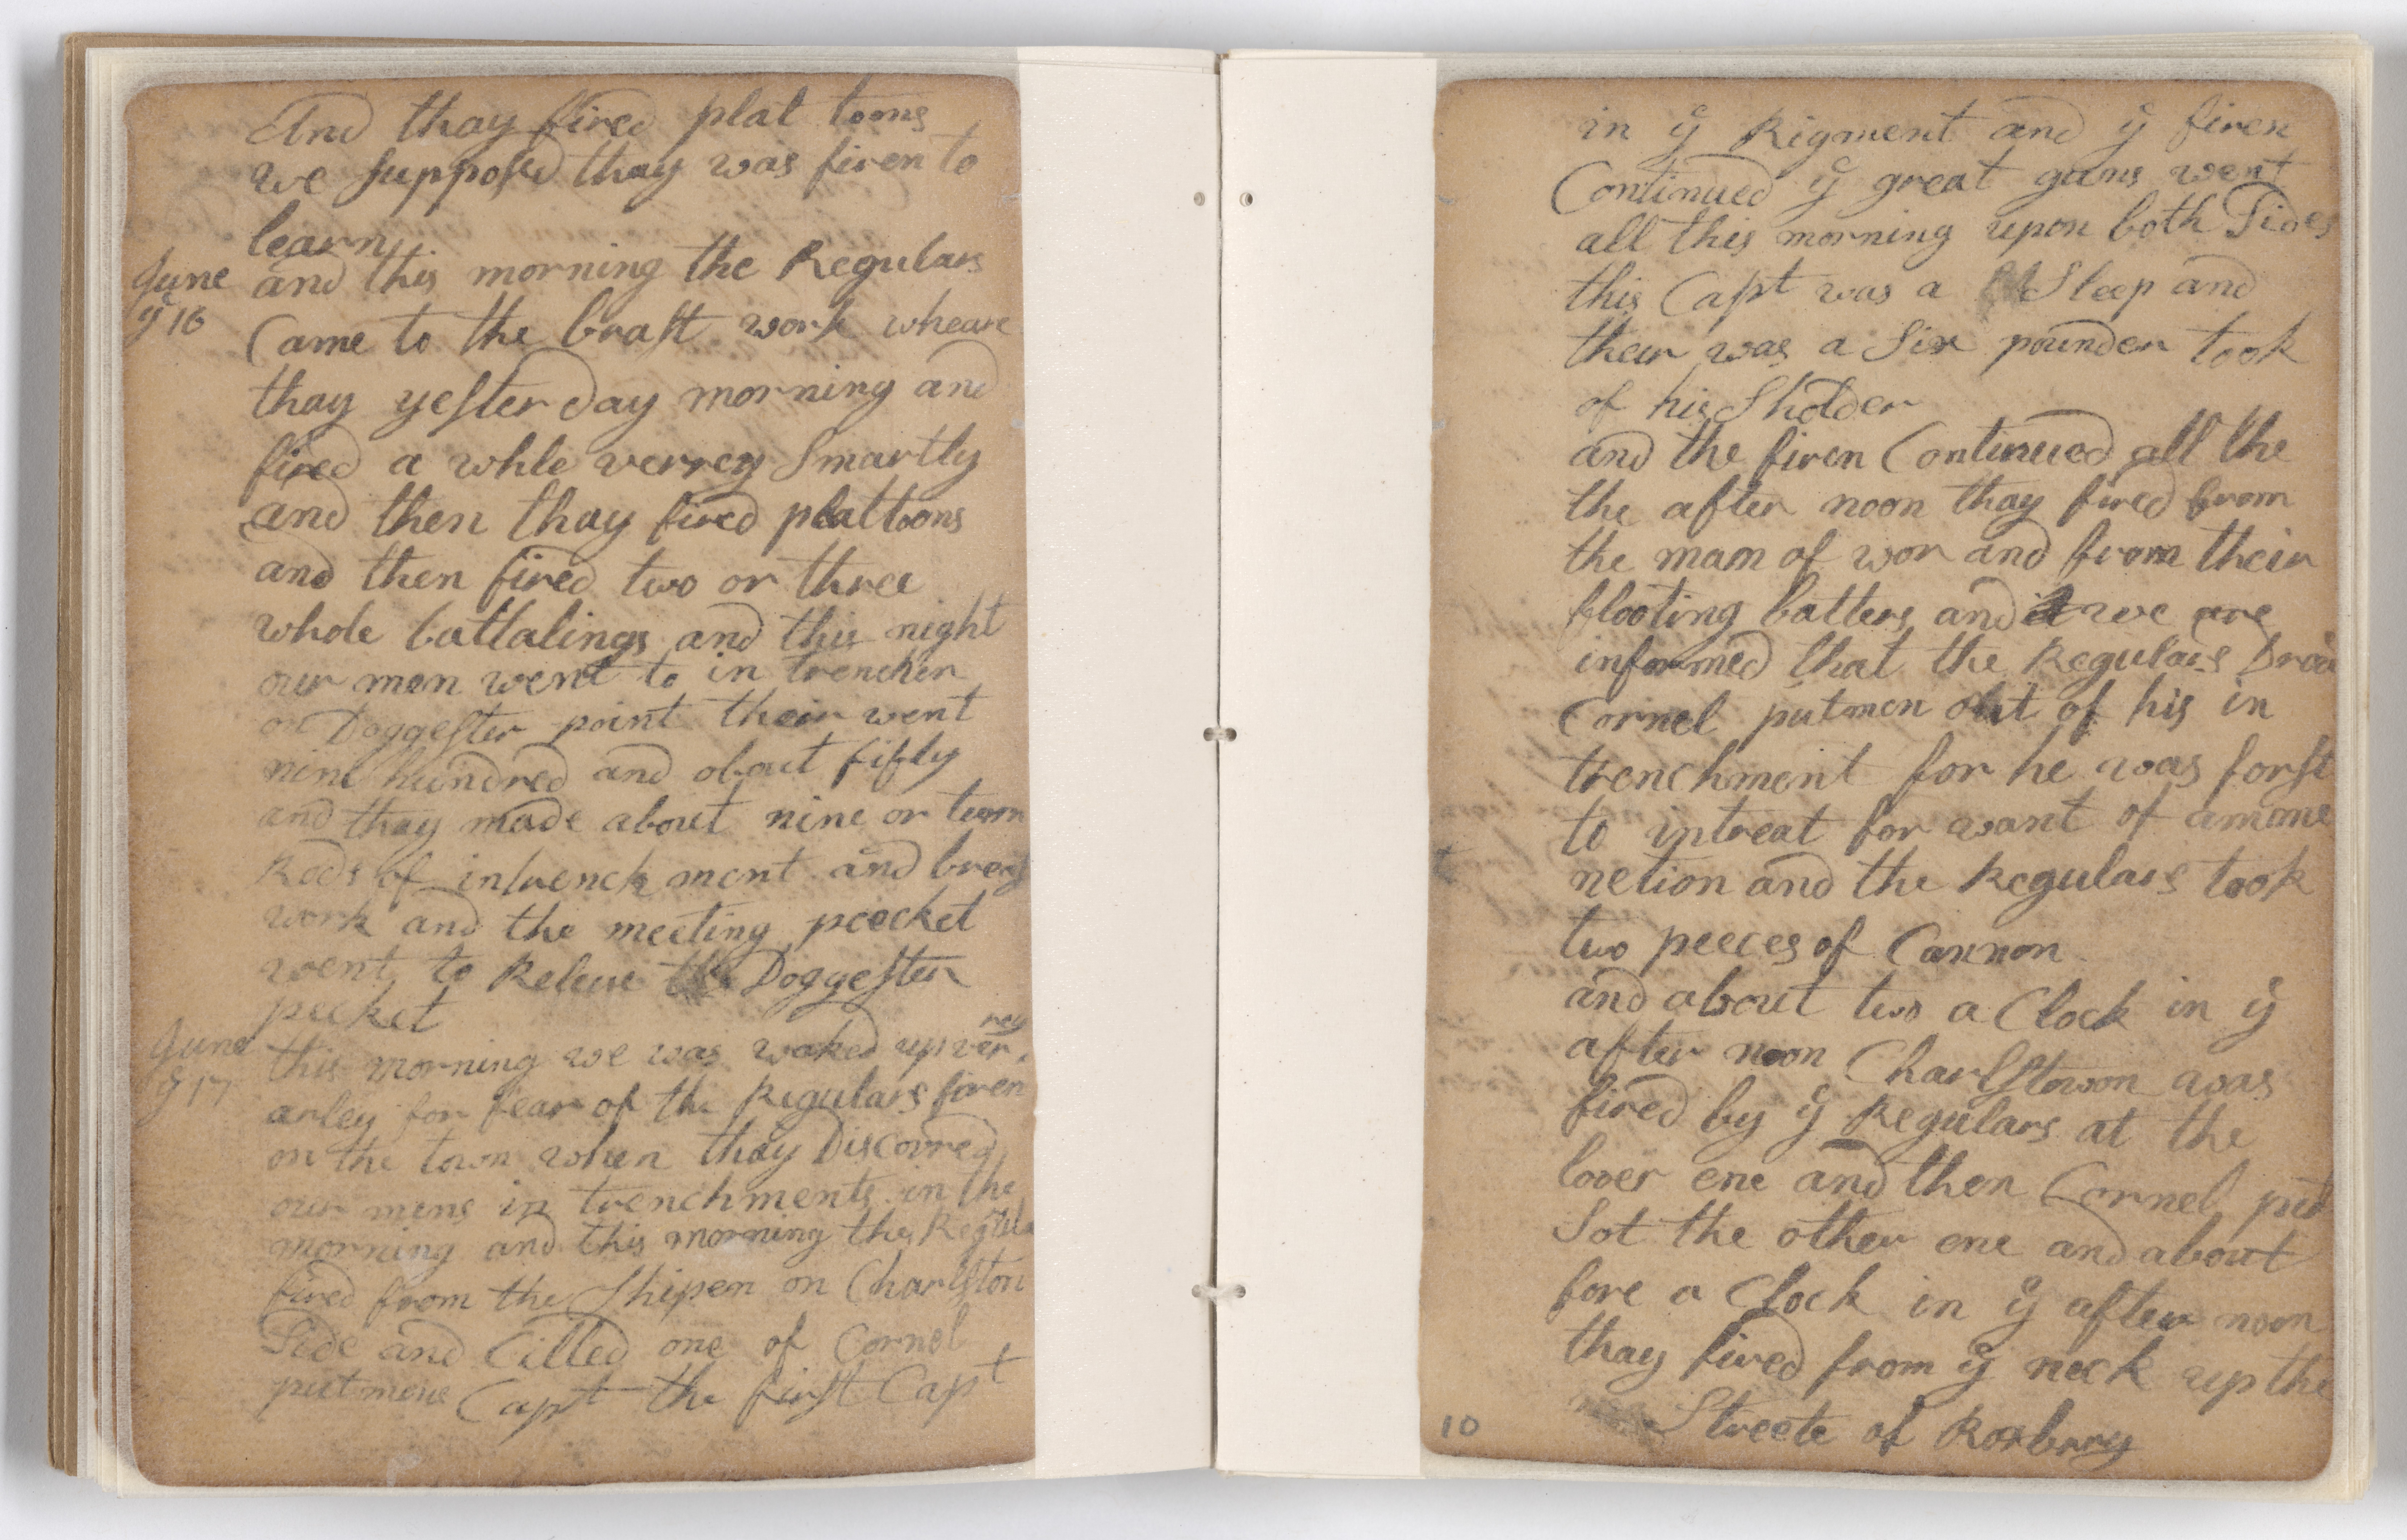 And thay fired plat toons
we supposed thay was firen to
learn
June
ye 16
and this morning the Regulars
Came to the brast work wheare
thay yesterday morning and
fired a while verrey Smartly
and then thay fired plattoons
and then fired two or three
whole battalings and this night
our men went to in trencher
on Doggester point their went
nine hundred and about fifty
and thay made about nine or
Rods of intrench ment and brest
work and the meeting peecket
went to Releive the Doggester
pecket
June
ye 17
this morning we was waked up ver
rey
arley for fear of the Regulars firen
on the town when thay Discovred
our mens in trenchments in the
morning and this morning the Regula
fired from the Shipen on Charlston
Side and Cilled one of Cornel
putmens Capt the first Capt
in ye Rigment and ye firen
Continued ye great guns went
all this morning upon both Sides
this Capt was a Sleep and
their was a Six pounder took
of his Sholder
and the firen Continued all the
the after noon thay fired from
the mam of wor and from their
flooting batters and we are
informed that the Regulars Drove
Cornel putmen out of his in
trenchment for he was forst
to intreat for want of amone
netion and the Regulars took
two peeces of Cannon
and about two a Clock in ye
after noon Charlstown was
fired by ye Regulars at the
lover ene and then Cornel put
Sot the other ene and about
fore a Clock in ye after noon
thay fired from ye neck up the
Streete of Roxbrey
10